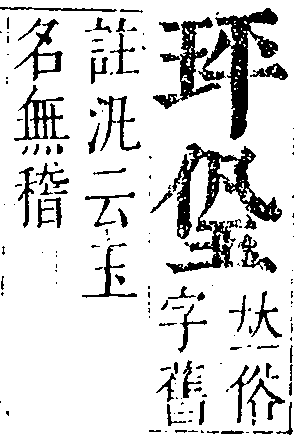 𠀤俗
字舊
註汎云玉
名無稽